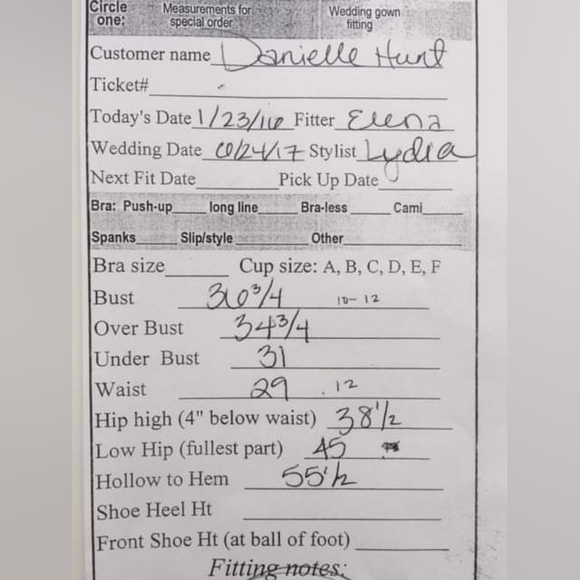 Circle one: Measurements for special order Wedding gown fitting
Customer name Danielle Hunt
Ticket#
Today's Date 1/23/16 Fitter Elena
Wedding Date 6/24/17 Stylist Lydia
Next Fit Date Pick Up Date
Bra: Push-up long line Bra-less Cami
Spanks Slip/style Other
Bra size Cup size: A, B, C, D, E, F
Bust 36 3/4 10-12
Over Bust 34 3/4
Under Bust 31
Waist 29 12
Hip high (4" below waist) 38 1/2
Low Hip (fullest part) 45
Hollow to Hem 55 1/2
Shoe Heel Ht
Front Shoe Ht (at ball of foot)
Fitting notes: